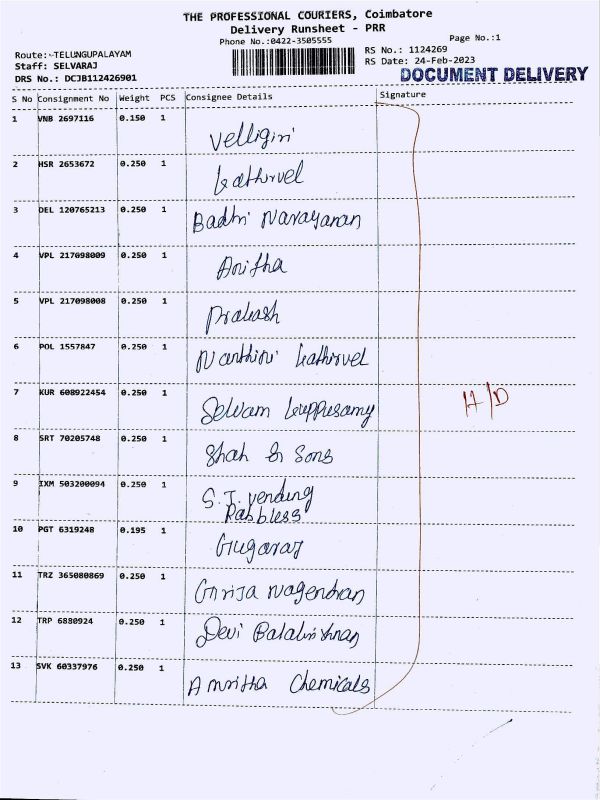 THE PROFESSIONAL COURIERS, Coimbatore
Delivery Runsheet - PRR
Phone No.:0422-3505555
Page No.:1
Route:-TELUNGUPALAYAM
Staff: SELVARAJ
DRS No.: DCJB112426901
RS No.: 1124269
RS Date: 24-Feb-2023
DOCUMENT DELIVERY
S No Consignment No Weight PCS Consignee Details Signature
1 VNB 2697116 0.150 1 Velligiri
2 HSR 2653672 0.250 1 Kathirvel
3 DEL 120765213 0.250 1 Badhri Narayanan
4 VPL 217098009 0.250 1 Anitha
5 VPL 217098008 0.250 1 Prakash
6 POL 1557847 0.250 1 Nanthini Kathirvel
7 KUR 608922454 0.250 1 Selvam Kuppusamy
H/D
8 SRT 70205748 0.250 1 Shah & Sons
9 IXM 503200094 0.250 1 S.J. vending
10 PGT 6319248 0.195 1
11 TRZ 365080869 0.250 1 Girija Nagendran
12 TRP 6880924 0.250 1 Devi Balakrishnan
13 SVK 60337976 0.250 1 Amritha Chemicals